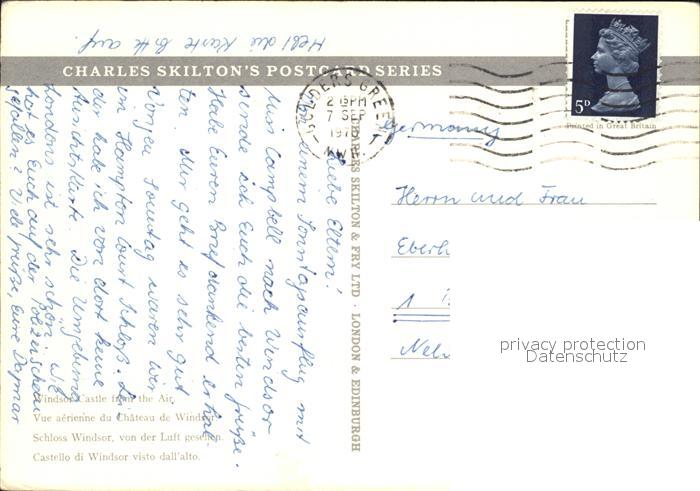 Hebt die Karte bitte auf.
CHARLES SKILTON'S POSTCARD SERIES
GOLDERS GREEN
2 15PM
7 SEP
1970
N.W.11
5D
Printed in Great Britain
Germany
Herrn und Frau
Eberh
1
Liebe Eltern!
Von einem Sonntagsausflug mit
Miss Campbell nach Windsor
sende ich Euch die besten Grüße.
Habe Euren Brief dankend erhal-
ten. Mir geht es sehr gut.
Vorigen Sonntag waren wir
im Hampton Court Schloß. Lei-
der habe ich von dort keine
Ansichtskarte. Die Umgebung
Londons ist sehr schön. Wie
hat es Euch auf der
gefallen? Viele Grüße, Eure Dagmar
CHARLES SKILTON & FRY LTD · LONDON & EDINBURGH
privacy protection
Datenschutz
Windsor Castle from the Air.
Vue aérienne du Château de Windsor.
Schloss Windsor, von der Luft gesehen.
Castello di Windsor visto dall'alto.